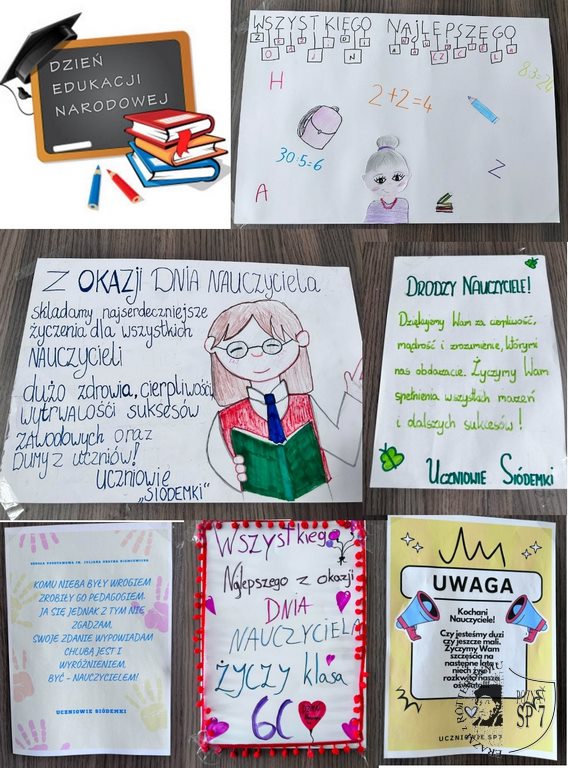 DZIEŃ
EDUKACJI
NARODOWEJ
WSZYSTKIEGO NAJLEPSZEGO
H
2+2=4
8·3=24
30:5=6
A
Z
Z OKAZJI DNIA NAUCZYCIELA
składamy najserdeczniejsze
życzenia dla wszystkich
NAUCZYCIELI
dużo zdrowia, cierpliwości
wytrwałośći sukcesów
zawodowych oraz
DUMY z UCZNIÓW!
UCZNIOWIE
„SIÓDEMKI"
DRODZY NAUCZYCIELE!
Dziękujemy Wam za cierpliwość,
mądrość i zrozumienie, którymi
nas obdarzacie. Życzymy Wam
spełnienia wszystkich marzeń
i dalszych sukcesów!
UCZNIOWIE SIÓDEMKI
SZKOŁA PODSTAWOWA IM. JULIANA URSYNA NIEMCEWICZA
KOMU NIEBA BYŁY WROGIEM
ZROBIŁY GO PEDAGOGIEM.
JA SIĘ JEDNAK Z TYM NIE
ZGADZAM.
SWOJE ZDANIE WYPOWIADAM
CHLUBĄ JEST I
WYRÓŻNIENIEM.
BYĆ - NAUCZYCIELEM!
UCZNIOWIE SIÓDEMKI
Wszystkiego
Najlepszego z okazji
DNIA
NAUCZYCIELA
ŻYCZY klasa
6C
UWAGA
Kochani
Nauczyciele!
Czy jesteśmy duzi
czy jeszcze mali.
Życzymy Wam
szczęścia na
następne lata
niech żyje i
rozkwita nasza
oświata
UCZNIOWIE SP7
SP7